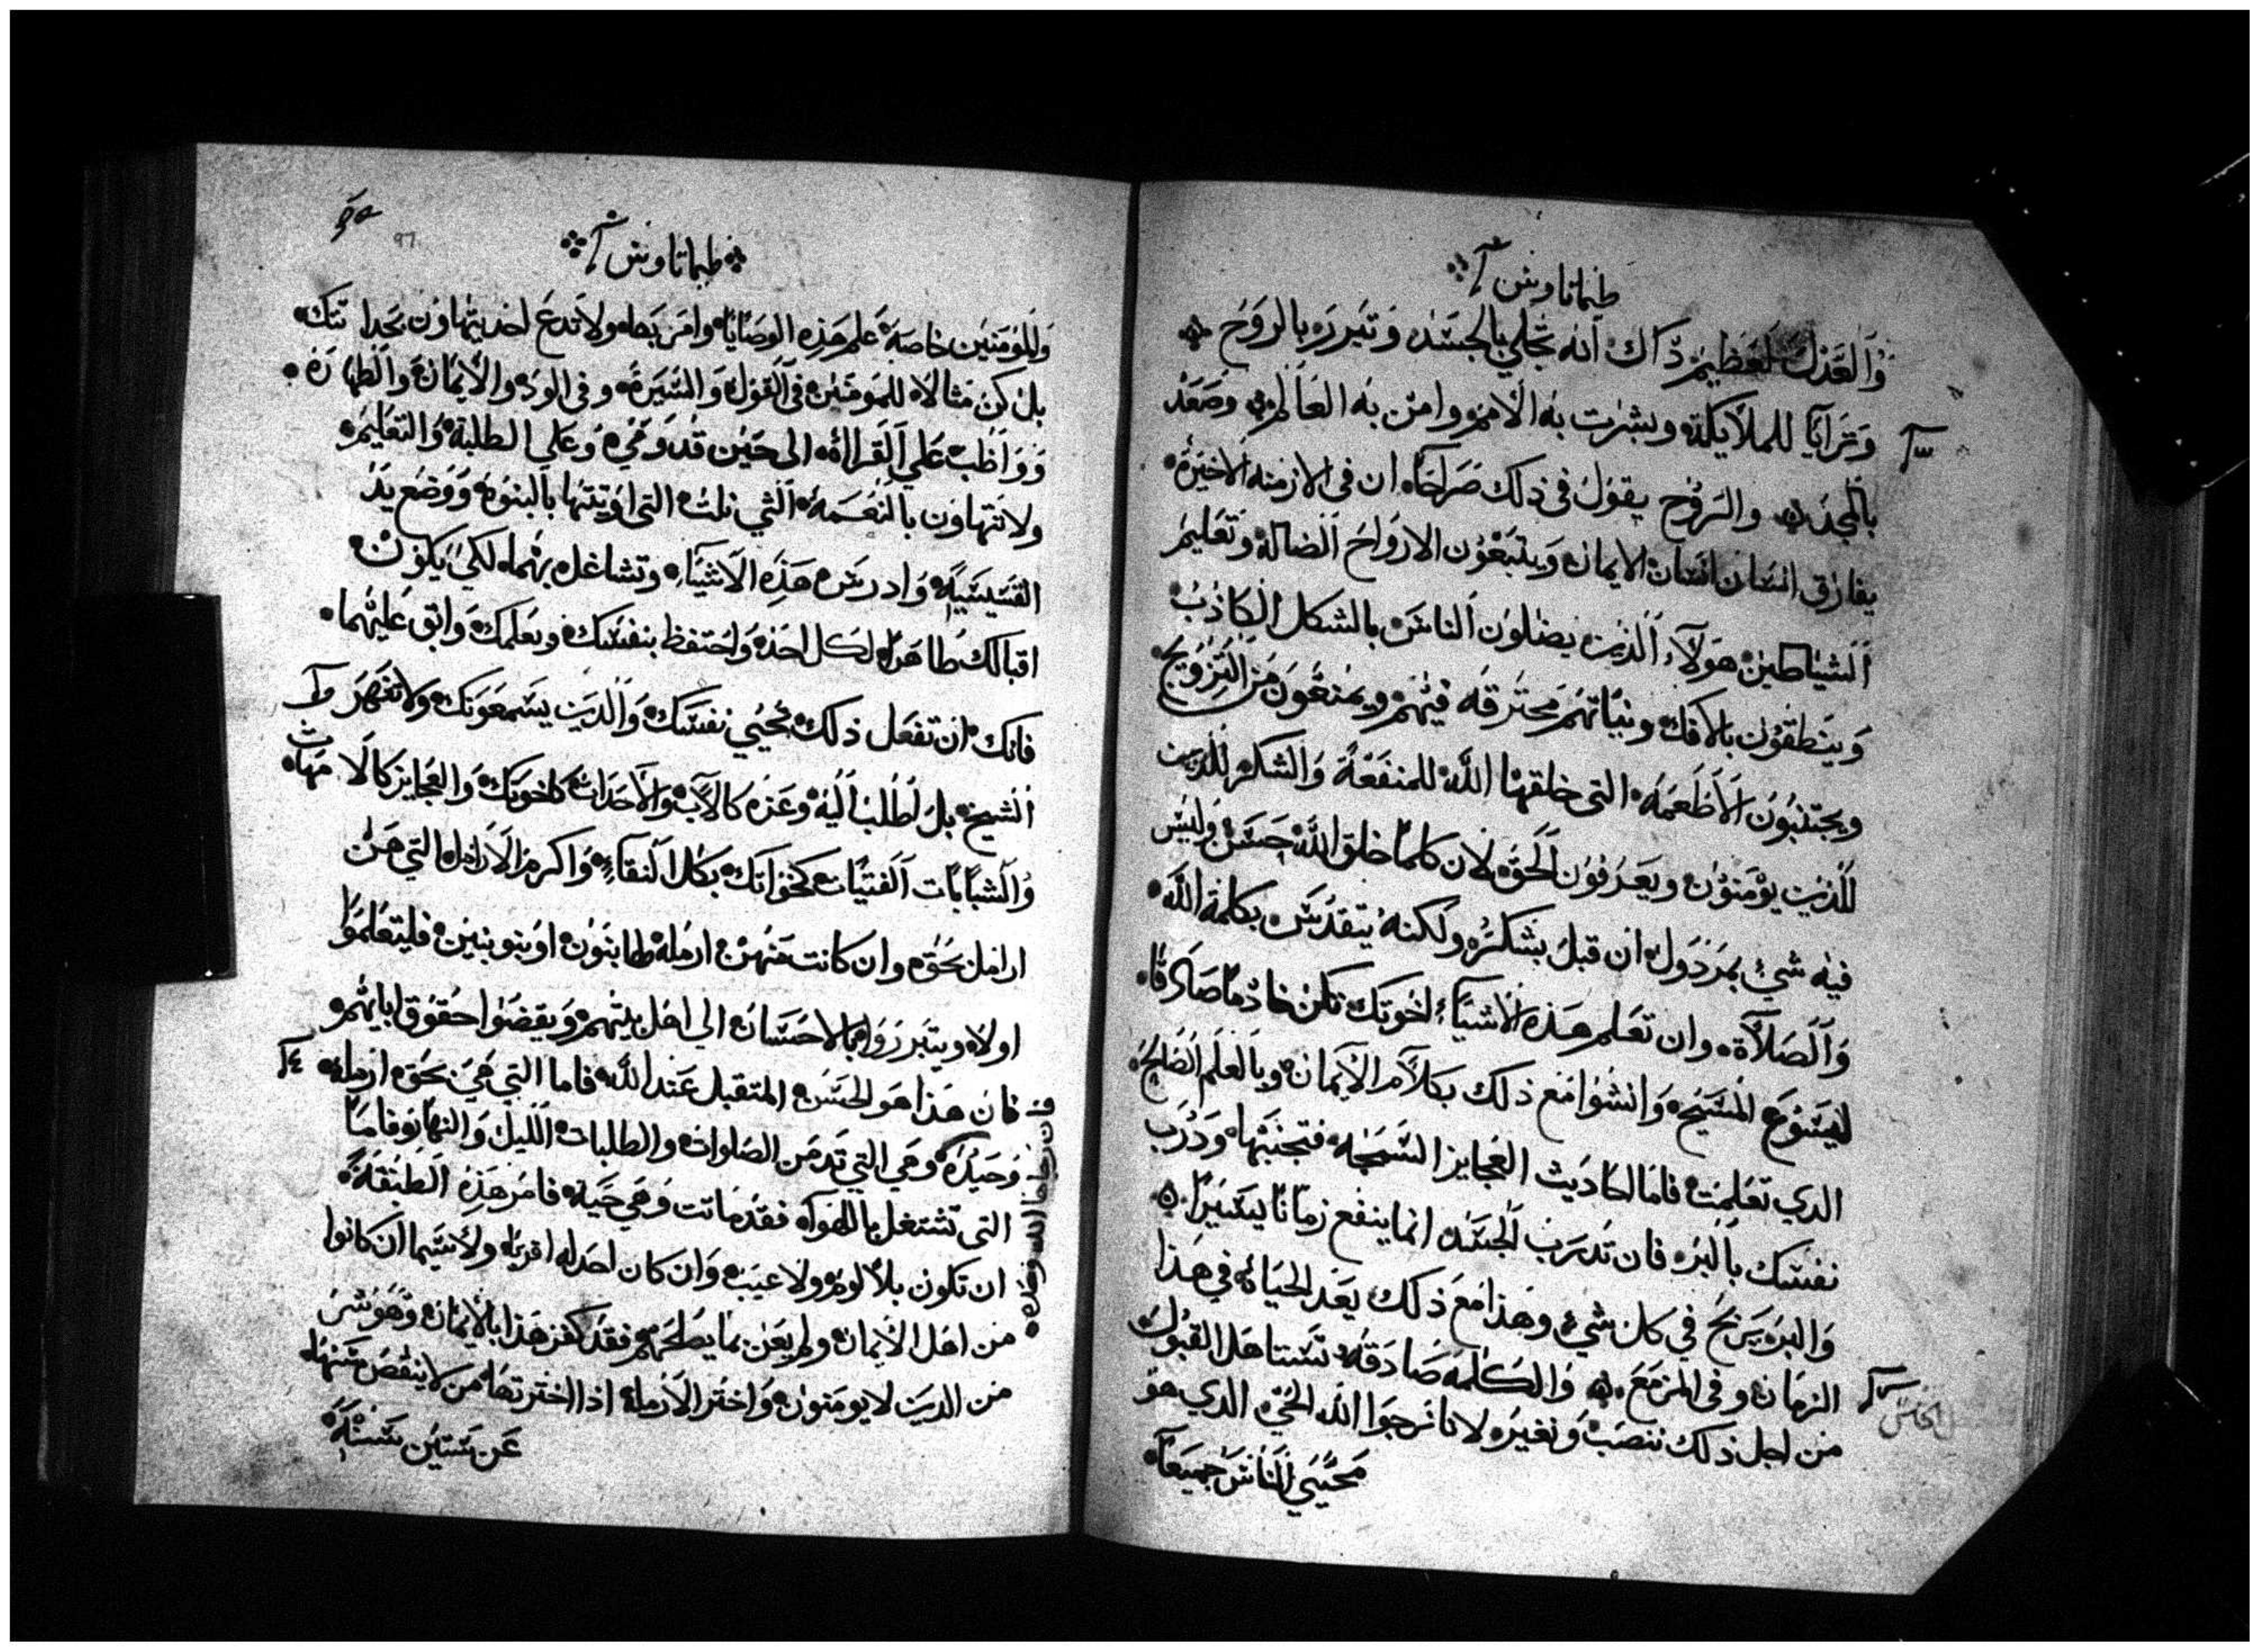 طيماتاوس أ
وَالعَدْل لعَظِيم ذاك انه تجلي بالجسَد وَتبَررَ بالروَح
وَترَايَا للملايكة وبشرت به الامم وامن به العالم وصَعَد
بالمجد والرَوُح يقول في ذلك صَراحًا ان في الازمنه الاخيرَة
يفارق انسَان انسَان الايمان وَيتبَعُون الارواحَ الضالة وتعَليم
الشيَاطين هَولآء الذين يضلون الناسَ بالشكل الكاذب
وَينطقون بالافك ونياتهم محترقه فيهم ويمنعُون من التزويج
ويجتنبُون الاطعَمه التي خلقها الله للمنفعَة وَالشكر للذين
للذين يؤمَنون ويعَرفون الحَق لان كلما خلق الله حسَن وليسَ
فيه شيء بمرَدول ان قبل بشكر ولكنه يتقدسَ بكلمة الله
وَالصَلاة وان تعَلم هَذه الاشيآء لخوتك تكن خادمًا صَادقا
ليسَوع المسَيح وَانشوا مَع ذلك بكلام الايمان وبالعلم الصَالح
الدي تعَلمت فاما احاديث العجايز السَمجه فتجنبها وَدرب
نفسَك بالبر فان تدرَب الجسَد انما ينفع زمانا يسَيرًا
وَالبر يَربح في كل شيء وهذا مَع ذلك يعَد الحيَاة في هذا
الزمَان وفي المزمَع وَالكلمه صَادقه تسَتاهَل القبُول
من اجل ذلك ننصَب وَنغير لانا نرجوا الله الحي الدي هوَ
محيَي الناسَ جميعَا
الخامس
طيماتاوس أ
وَالمؤمنين خاصَة عَلم هَذه الوصَايا وامَر بها ولا تدعَ احد يتهاون بحداثتك
بل كن مثالا للمومَنين في القول وَالسَيرَة وفي الود والايمان والطهارَة
وَوَاظب عَلي القراة الى حَين قدومَي وعَلي الطلبة وَالتعَليم
ولا تتهاون بالنعَمة التي نلت التي اوتيتها بالبنوة وَوَضع يد
القسَيسَية وادرسَ هَذه الاشيَاء وتشاغل بهما لكي يكون
اقبالك ظاهَرا لكل احد وَاحتفظ بنفسَك وبعَلمك وَابق عَليهما
فانك ان تفعَل ذلك تحيي نفسَك وَالذين يسَمعَونك ولا تنهرَ
الشيخ بل اطلب اليه وعَزه كالاب والاحداث كاخوتك وَالعجايز كالامهات
وُالشبابات الفتيات كخواتك بكل النقآء وَاكرم الارامل التي هَن
ارامل بحَق وان كانت مَنهن ارملة لها بنون او بنو بنين فليتعَلموا
اولا ويتبَرروا بالاحسَان الى اهل بيتهم وَيقضوا حقوق ابايهم
فان هَذا هوَ الحسَن المتقبل عَند الله فاما التي هَي بحَق ارملة
وحيده وهي التي تدمَن الصلوات والطلبات الليل وَالنهار وفامَا
التي تشتغل باللهو فقد مَاتت وَهَي حَية فامر هَذه الطبقة
ان تكون بلا لوم ولا عيب وَان كان احد له اقربا ولا سَيما ان كانوا
من اهَل الايمان ولم يعَن بما يصلحَهم فقد كفر هَذا بالايمان وَهوَ شر
من الدين لا يومَنون وَاختر الارملة اذا اخترتها من لا ينقص سَنها
عَن سَتين سَنة